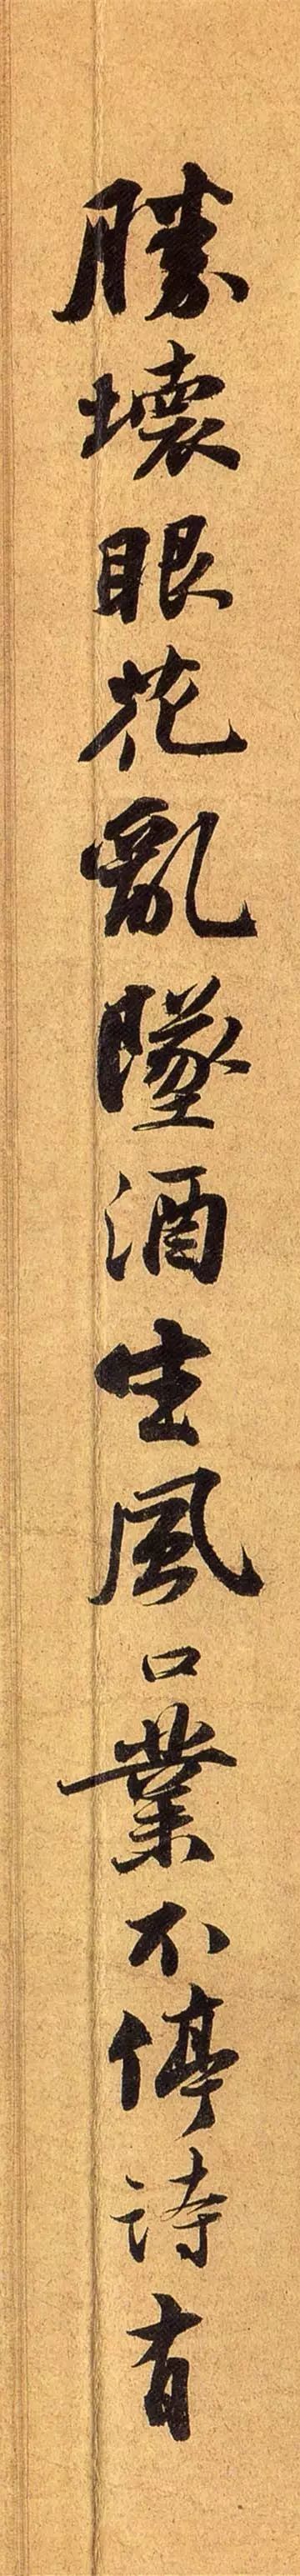 勝壞眼花亂墜酒生風口業不停詩有